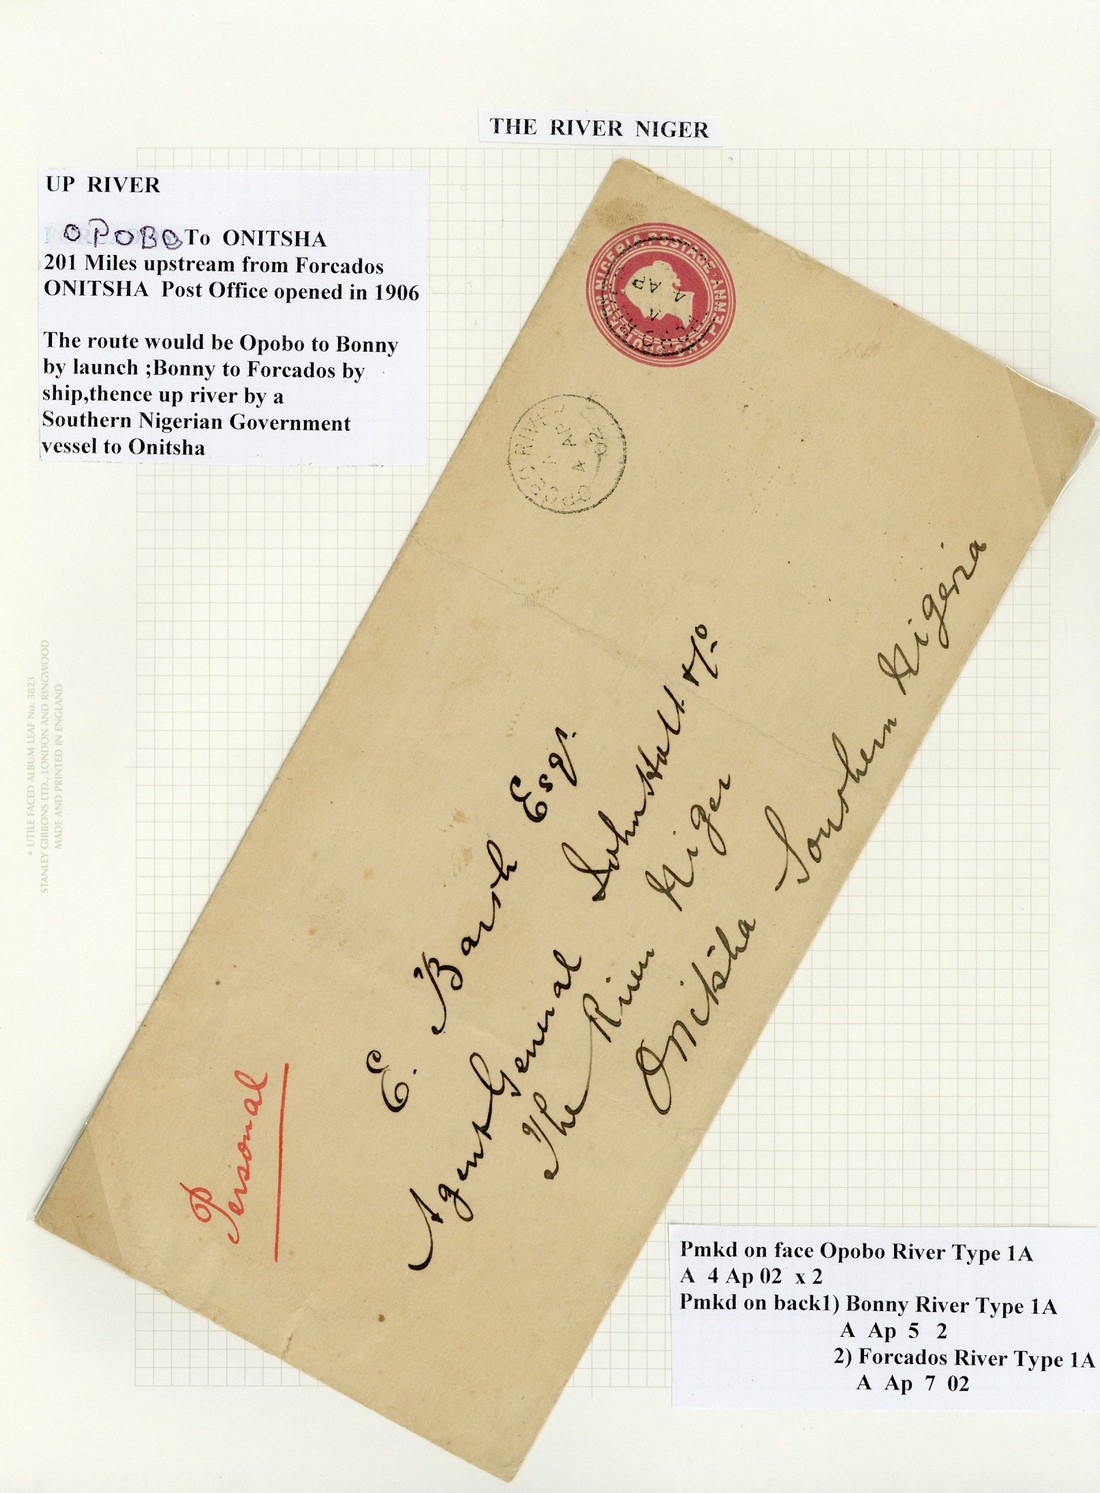 THE RIVER NIGER
UP RIVER
OPOBO To ONITSHA
201 Miles upstream from Forcados
ONITSHA Post Office opened in 1906
The route would be Opobo to Bonny
by launch ;Bonny to Forcados by
ship,thence up river by a
Southern Nigerian Government
vessel to Onitsha
NIGERIA POSTAGE AND
ONE PENNY
4 AP
OPOBO RIVER
A
4 AP
02
Personal
E. Barsh Esqr.
Agent General John Holt & Co
The River Niger
Onitsha Southern Nigeria
• UTILE FACED ALBUM LEAF No. 3823
STANLEY GIBBONS LTD., LONDON AND RINGWOOD
MADE AND PRINTED IN ENGLAND
Pmkd on face Opobo River Type 1A
A 4 Ap 02 x 2
Pmkd on back1) Bonny River Type 1A
A Ap 5 2
2) Forcados River Type 1A
A Ap 7 02